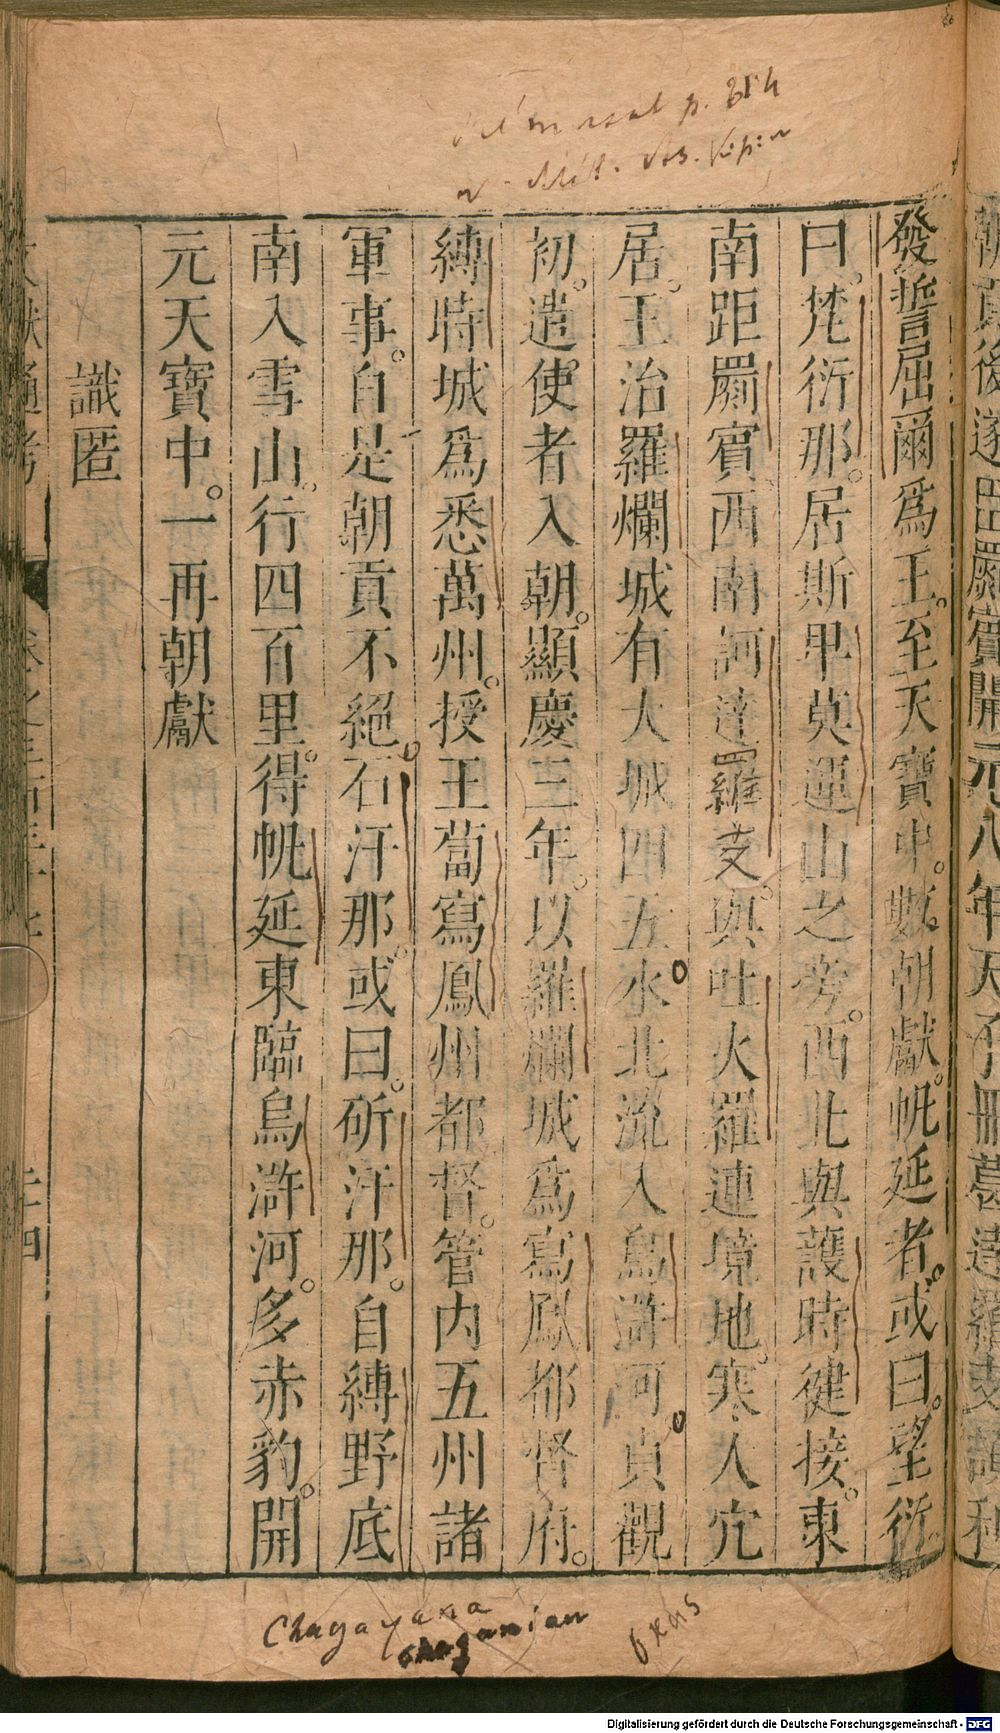 發誓屈爾爲王。至天寶中。數朝獻。帆延者。或曰。望衍。
曰。梵衍那。居斯卑莫運山之旁。西北與護時健接。東
南距罽賓。西南訶達羅支。與吐火羅連境。地寒。人穴
居。王治羅爛城有大城四五水北流入烏滸河貞觀
初。遣使者入朝。顯慶三年。以羅爛城爲寫鳳都督府。
縛時城爲悉萬州。授王葡寫鳳州都督。管內五州諸
軍事。自是朝貢不絕。石汗那。或曰。斫汗那。自縛野底
南入雪山。行四百里。得帆延東臨烏滸河。多赤豹。開
元天寶中。一再朝獻
識匿
文獻通考
二十四
Chagayana
chaganian
Oxus
Digitalisierung gefördert durch die Deutsche Forschungsgemeinschaft - DFG